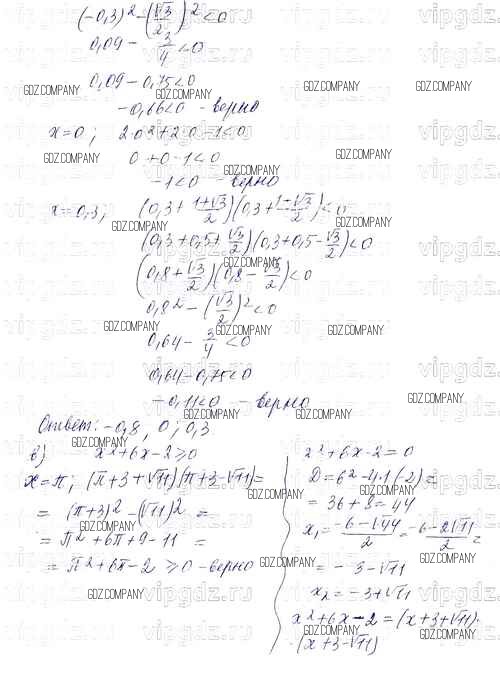 (-0,3)² - (√3/2)² < 0
0,09 - 3/4 < 0
0,09 - 0,75 < 0
-0,66 < 0 - верно
x = 0; 2·0² + 2·0 - 1 < 0
0 + 0 - 1 < 0
-1 < 0 - верно
x = 0,3; (0,3 + (1+√3)/2)(0,3 + (1-√3)/2) < 0
(0,3 + 0,5 + √3/2)(0,3 + 0,5 - √3/2) < 0
(0,8 + √3/2)(0,8 - √3/2) < 0
0,8² - (√3/2)² < 0
0,64 - 3/4 < 0
0,64 - 0,75 < 0
-0,11 < 0 - верно
Ответ: -0,8, 0; 0,3
в) x² + 6x - 2 ≥ 0
x = π; (π + 3 + √11)(π + 3 - √11) =
= (π + 3)² - (√11)² =
= π² + 6π + 9 - 11 =
= π² + 6π - 2 ≥ 0 - верно
x² + 6x - 2 = 0
D = 6² - 4·1·(-2) =
= 36 + 8 = 44
x₁ = (-6 - √44)/2 = (-6 - 2√11)/2 =
= -3 - √11
x₂ = -3 + √11
x² + 6x - 2 = (x + 3 + √11)·
·(x + 3 - √11)
GDZ.COMPANY
vipgdz.ru